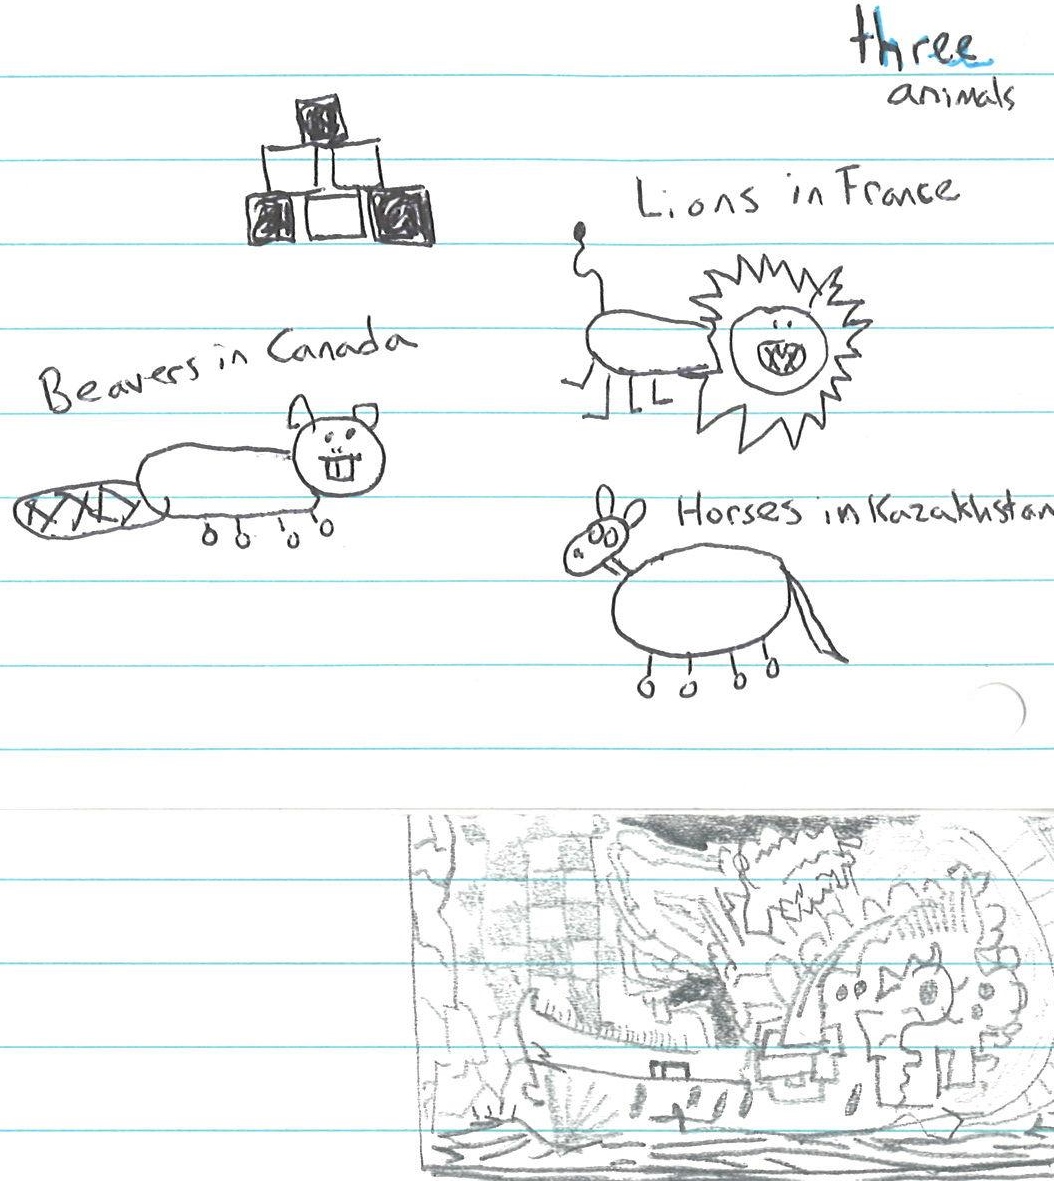 three
animals
Lions in France
Beavers in Canada
Horses in Kazakhstan